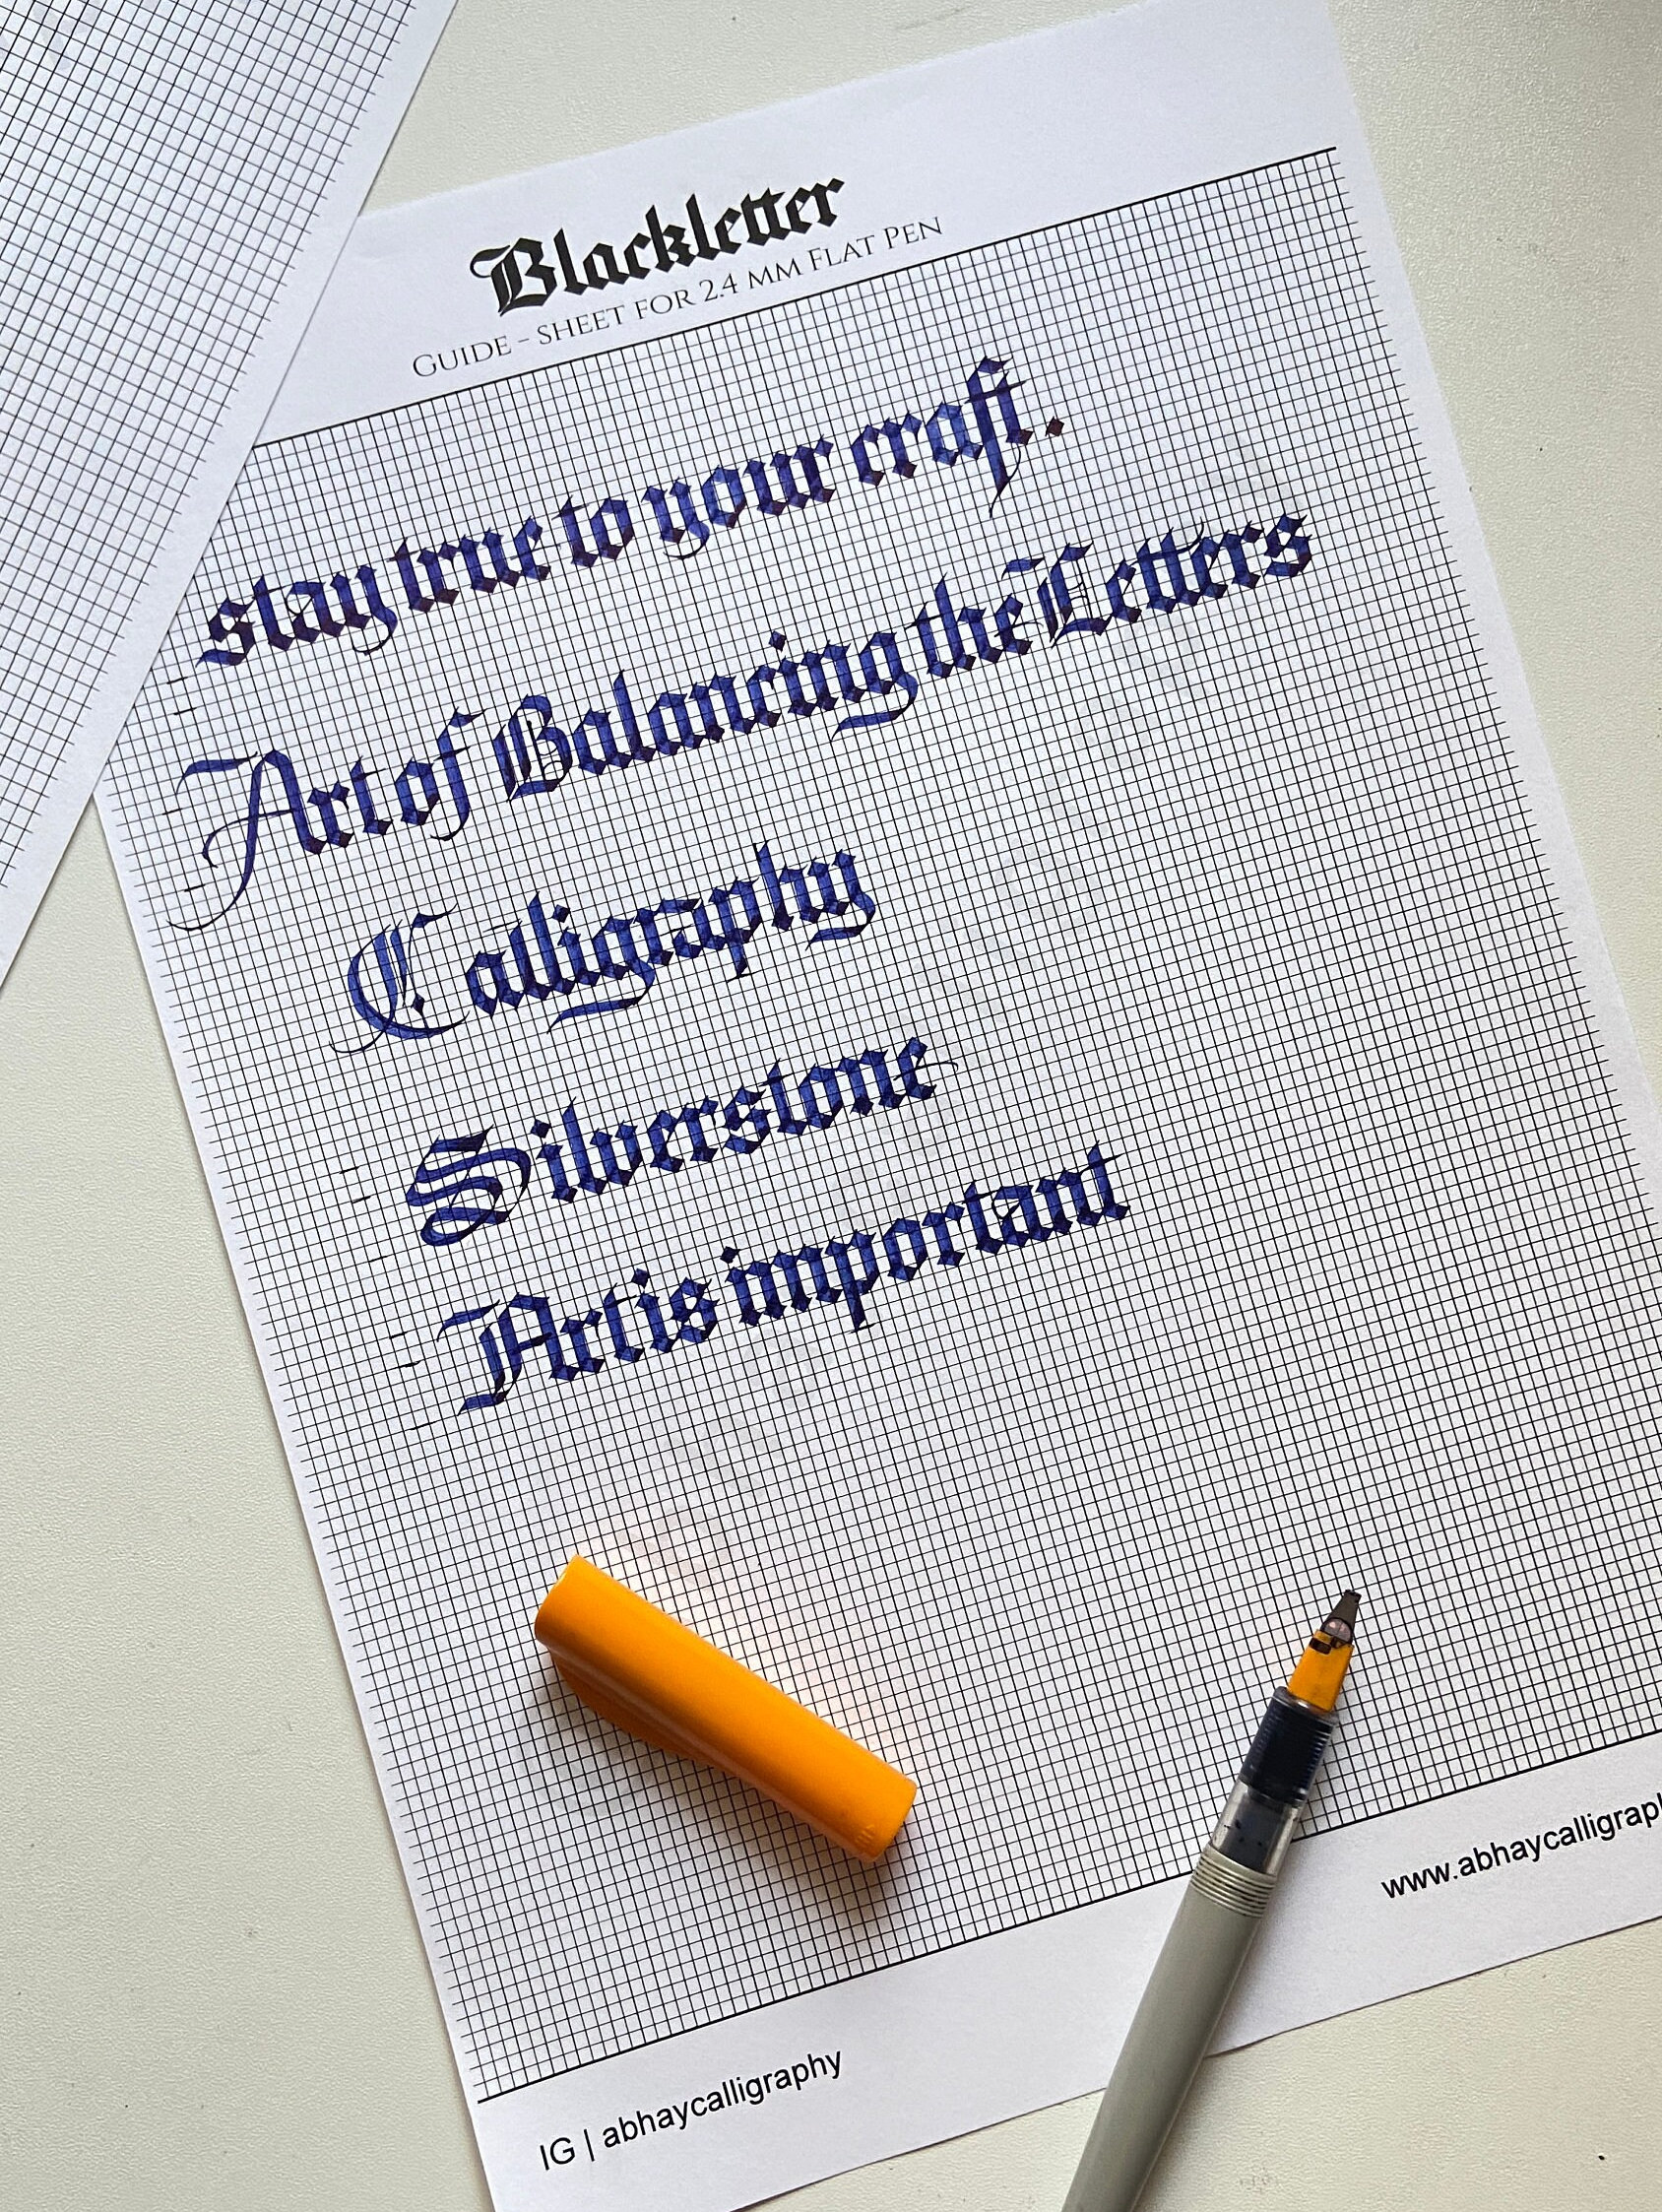 Blackletter
GUIDE - SHEET FOR 2.4 MM FLAT PEN
stay true to your craft.
Art of Balancing the Letters
Calligraphy
Silverstone
Art is important
www.abhaycalligraph
IG | abhaycalligraphy